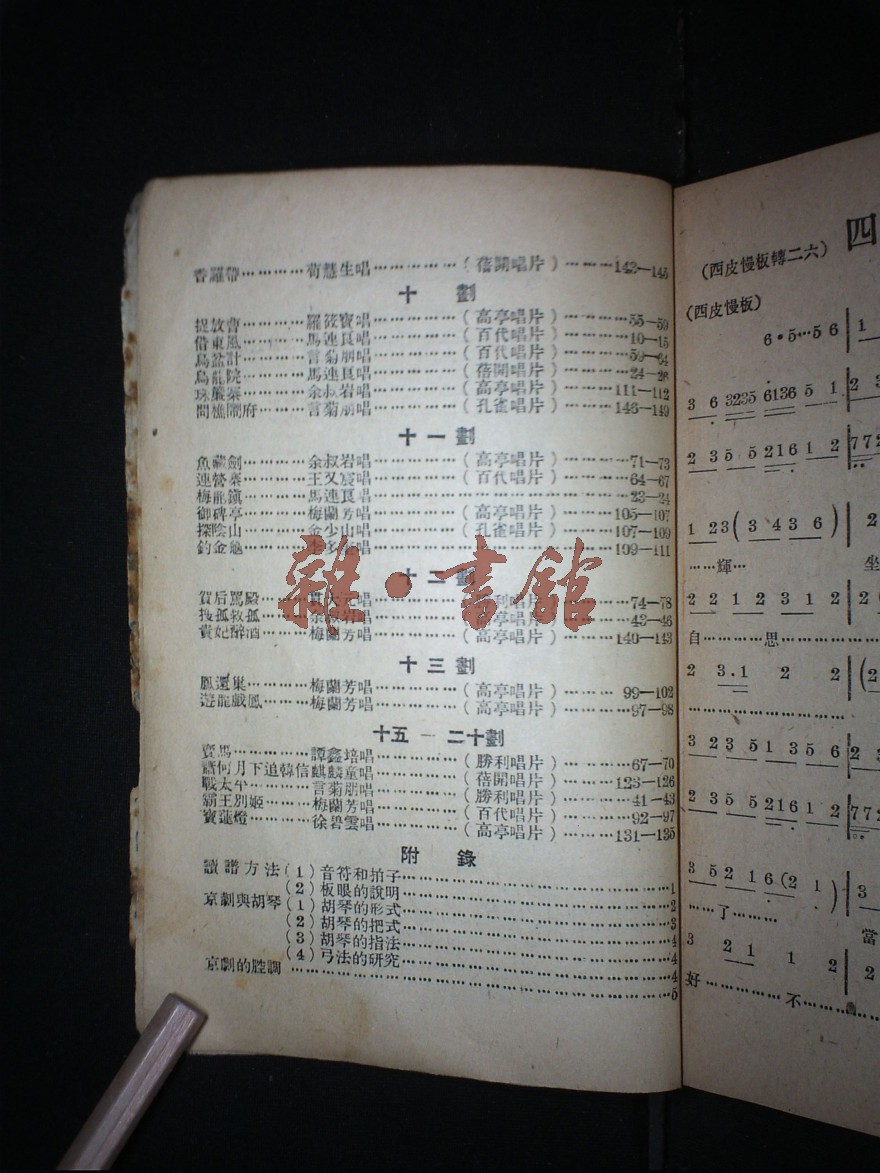 香羅帶…………荀慧生唱……………(蓓開唱片)………143—145
十　劃
捉放曹…………羅筱寶唱……………(高亭唱片)………55—59
借東風…………馬連良唱……………(百代唱片)………10—15
烏盆計…………言菊朋唱……………(百代唱片)………59—64
烏龍院…………馬連良唱……………(蓓開唱片)………24—28
珠簾寨…………余叔岩唱……………(高亭唱片)………111—112
問樵鬧府………言菊朋唱……………(孔雀唱片)………146—149
十一劃
魚藏劍…………余叔岩唱……………(高亭唱片)………71—73
連營寨…………王又宸唱……………(百代唱片)………64—67
梅龍鎮…………馬連良唱………………………………23—24
御碑亭…………梅蘭芳唱……………(高亭唱片)………105—107
探陰山…………金少山唱……………(孔雀唱片)………107—109
釣金龜…………李多奎唱………………………………109—111
十二劃
賀后罵殿………貫大元唱……………(勝利唱片)………74—78
搜孤救孤………余叔岩唱……………(高亭唱片)………43—46
貴妃醉酒………梅蘭芳唱……………(高亭唱片)………140—143
十三劃
鳳還巢…………梅蘭芳唱……………(高亭唱片)………99—102
遊龍戲鳳………梅蘭芳唱……………(高亭唱片)………97—98
十五 — 二十劃
賣馬……………譚鑫培唱……………(勝利唱片)………67—70
蕭何月下追韓信麒麟童唱……………(蓓開唱片)………123—126
戰太平…………言菊朋唱……………(勝利唱片)………41—43
霸王別姬………梅蘭芳唱……………(百代唱片)………92—97
寶蓮燈…………徐碧雲唱……………(高亭唱片)………131—135
附　錄
讀譜方法(1)音符和拍子………………………………1
(2)板眼的說明………………………………2
京劇與胡琴(1)胡琴的形式………………………………3
(2)胡琴的把式………………………………4
(3)胡琴的指法………………………………4
(4)弓法的研究………………………………4
京劇的腔調………………………………5
雜·書館
四
(西皮慢板轉二六)
(西皮慢板)
6·5…5 6 | 1
3 6 3235 6136 5 1 | 2 3
2 3 5 5 216 1 2 | 772
1 23(3 43 6) | 2
……輝… 坐
2 2 1 2 3 1 2 | 2(
自……思……………
2 3.1 2 2 | (2
3 2 3 5 1 3 5 | 2
2 3 5 5 216 1 2 | 77
3 5 2 1 6(2 1) | 3
……了……… 當
3 21 1 2 | 2
好…………不…